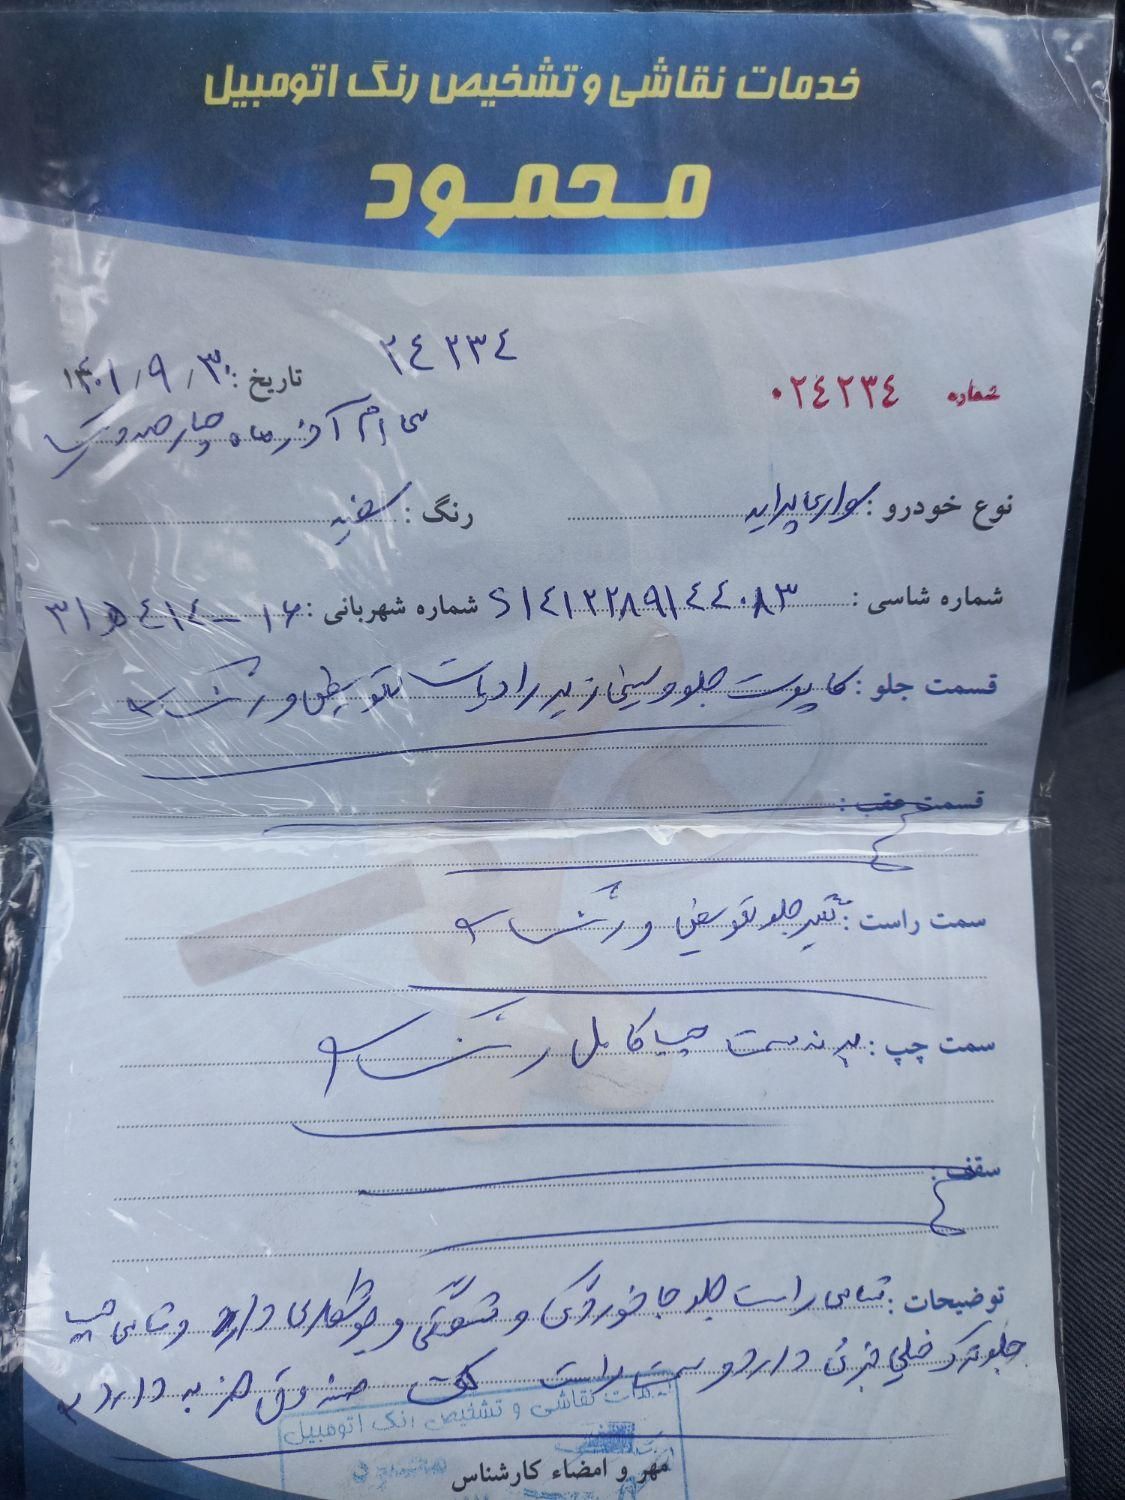 خدمات نقاشی و تشخیص رنگ اتومبیل
محمود
۲۴۲۳۴
شماره ۰۲۴۲۳۴
تاریخ: ۱۴۰۱/۹/۳۰
سی ام آذر ماه چهارصد و یک
نوع خودرو: سواری پراید
رنگ: سفید
شماره شاسی: S۱۴۱۲۲۸۹۱۴۴۰۸۳
شماره شهربانی: ۳۱ ۴۱۴-۱۶
قسمت جلو: کاپوت جلو و سینی زیر رادیات تعویض و رنگ شده
قسمت عقب:
سمت راست: گلگیر جلو تعویض و رنگ شده
سمت چپ: بدنه سمت چپ کامل رنگ شده
سقف:
توضیحات: شاسی راست جلو جا خوردگی و شکستگی و جوشکاری دارد و شاسی چپ
جلو ترک خیلی جزئی دارد و سمت راست کف صندوق ضربه دارد
خدمات نقاشی و تشخیص رنگ اتومبیل
مهر و امضاء کارشناس